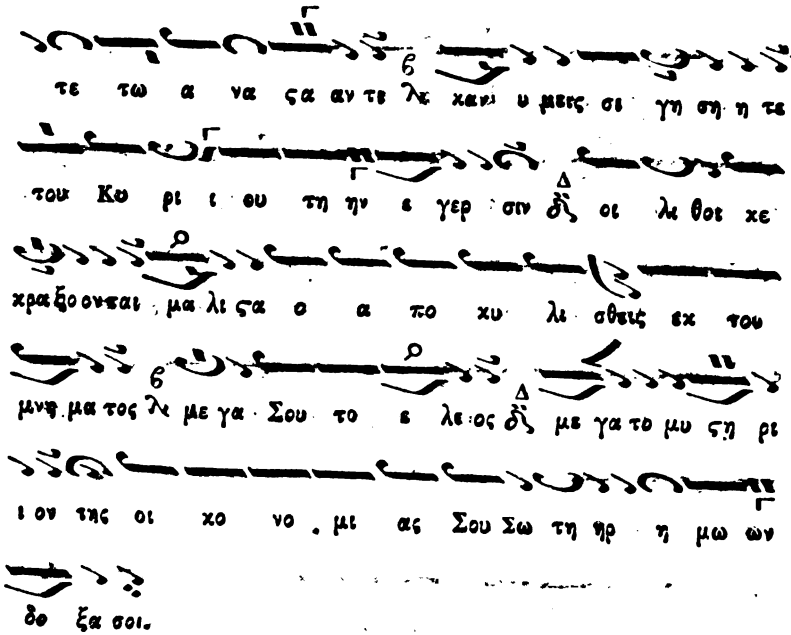 τε τω α να ϛα αν τε λε καν υ μεις σι γη ση η τε
του Κυ ρι ι ου τη ην ε γερ σιν δι οι λι θοι κε
κρα ξο ονται μα λι ϛα ο α πο κυ λι σθεις εκ του
μνη μα τος λε με γα Σου το ε λε ος δι με γα το μυ ϛη ρι
ι ον της οι κο νο μι ας Σου Σω τη ηρ η μω ων
δο ξα σοι.